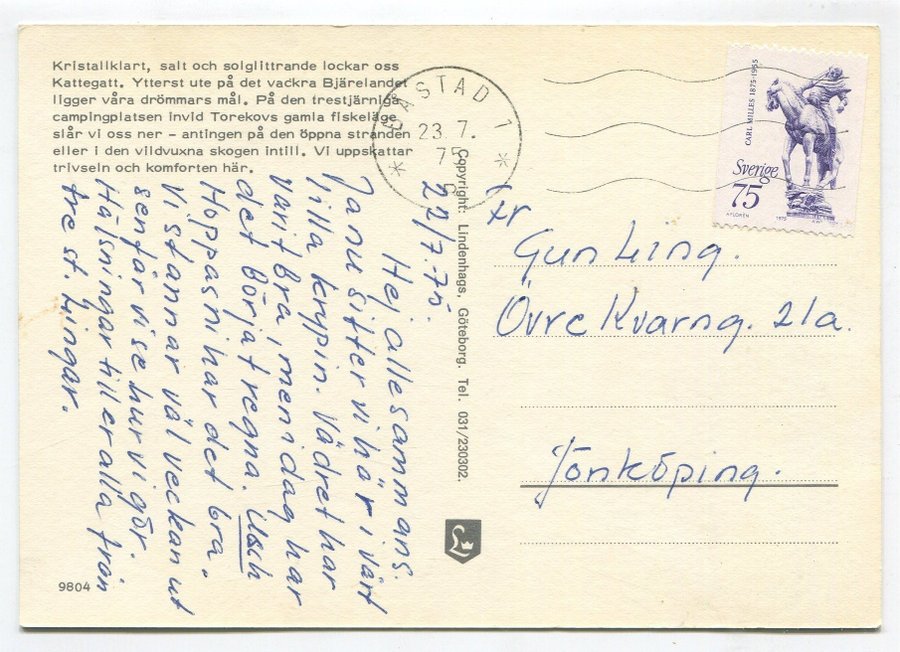 Kristallklart, salt och solglittrande lockar oss
Kattegatt. Ytterst ute på det vackra Bjärelandet
ligger våra drömmars mål. På den trestjärniga
campingplatsen invid Torekovs gamla fiskeläge
slår vi oss ner – antingen på den öppna stranden
eller i den vildvuxna skogen intill. Vi uppskattar
trivseln och komforten här.
22/7.75.
Hej allesammans.
Ja nu sitter vi här i vårt
lilla krypin. Vädret har
varit bra, men i dag har
det börjat regna. Usch
Hoppas ni har det bra.
Vi stannar väl veckan ut
sen får vi se hur vi gör.
Hälsningar till er alla från
tre st. Lingar.
9804
Copyright: Lindenhags, Göteborg. Tel. 031/230302.
L
BÅSTAD 1
23.7.
75
CARL MILLES 1875-1955
Sverige
75
1975
Fr
Gun Ling.
Övre Kvarng. 21a.
Jönköping.